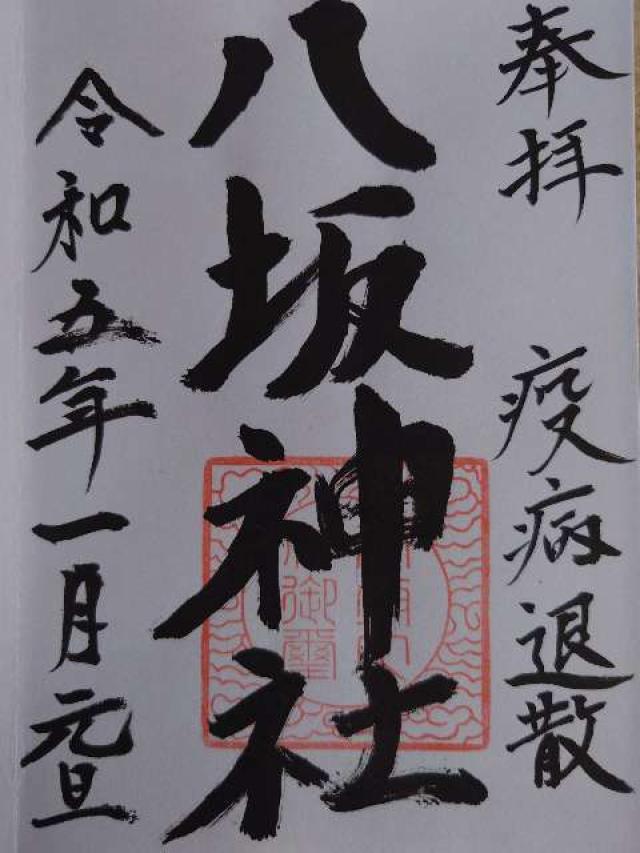 奉拝 疫病退散
八坂神社
令和五年一月元旦